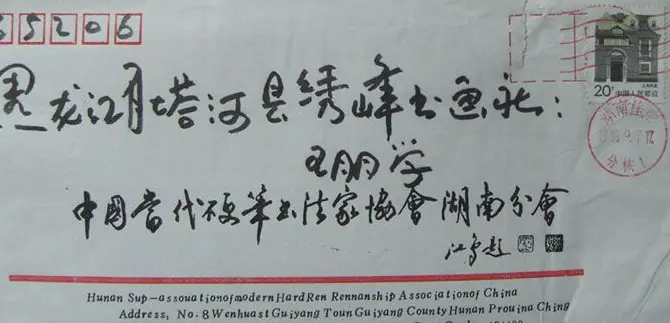 65206
20分
中国人民邮政
黑龙江省塔河县绣峰书画社：
王朋学
分拣1
中國當代硬筆书法家協會湖南分會
江鳥题
Hunan Sup—assouationofmodernHardRen Rennanship Associationof China
Address, No.8WenhuastGuiyang TounGuiyang CountyHunan Prouina Ching